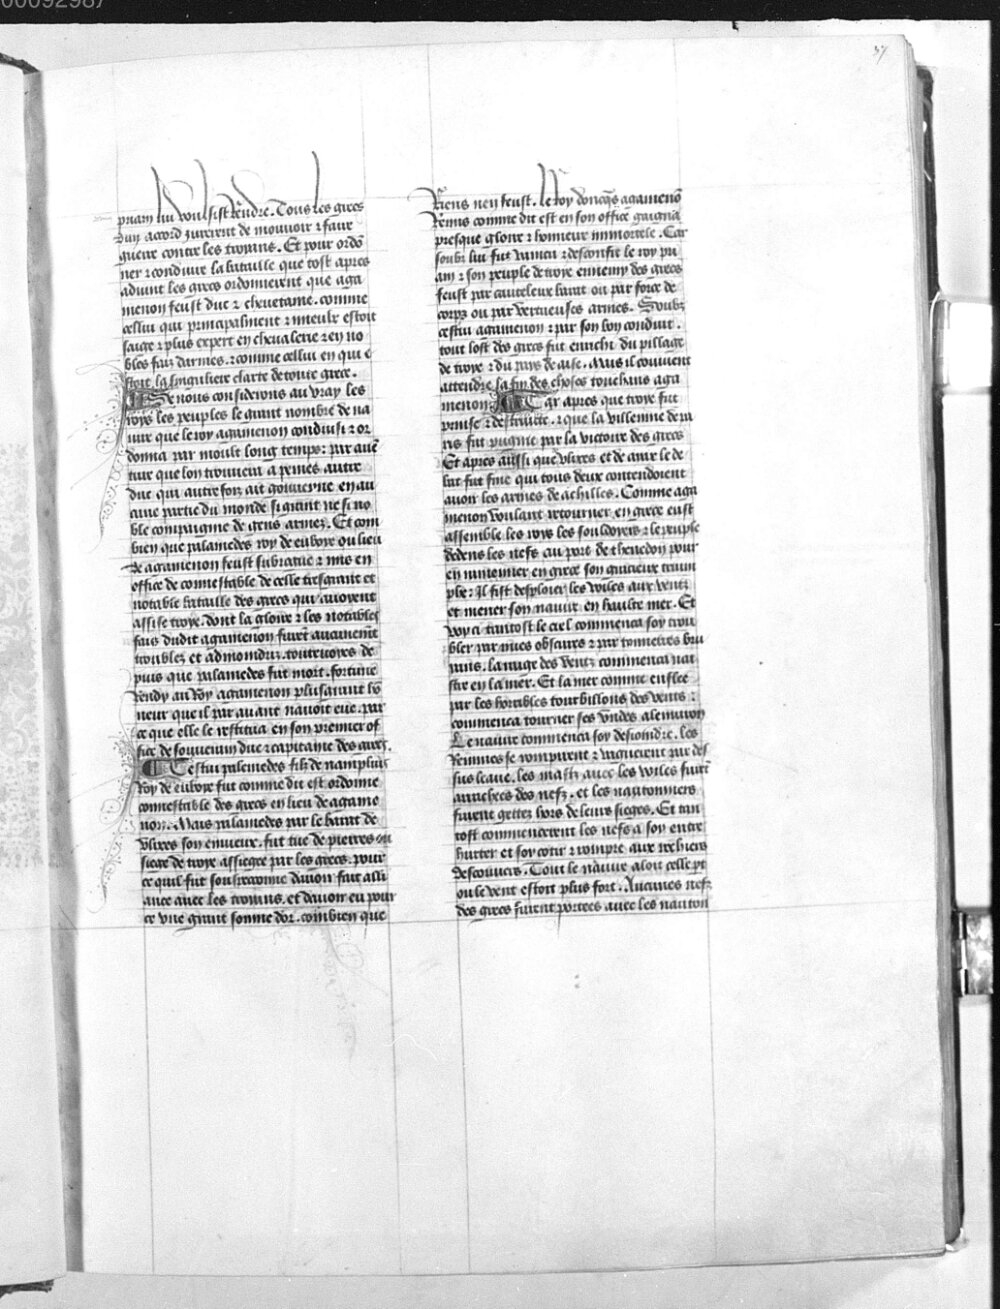 00092987
37
priam lui voulsist rendre. Tous les grecs
dun accord jurerent de mouuoir ⁊ faire
guerre contre les troians. Et pour ordõ
ner ⁊ conduire la bataille que tost apres
aduint les grecs ordonnerent que aga
menon feust duc ⁊ cheuetaine. comme
cellui qui principalment ⁊ mieulx estoit
saige ⁊ plus expert en cheualerie ⁊ en no
bles fais darmes. ⁊ comme cellui en qui e
stoit la singuliere clarte de toute grece.
Se nous considerons au vray les
roys les peuples le grant nombre de na
uire que le roy agamenon conduisi ⁊ or
donna par moult long temps: par auẽ
ture que lon trouuera a peines autre
duc qui autrefois ait gouuerne en au
cune partie du monde si grant ne si no
ble compaignie de gens armez. Et com
bien que palamedes roy de euboye ou lieu
de agamenon feust subrogue ⁊ mis en
office de connestable de celle tresgrant et
notable bataille des grecs qui auoyent
assise troye. dont la gloire ⁊ les notables
fais dudit agamenon furẽt aucunemẽ
troublez et admoindriz. toutesuoyes de
puis que palamedes fut mort. fortune
rendy au Roy agamenon plus grant hõ
neur que il par auant nauoit eue. par
ce que elle le restitua en son premier of
fice de souuerain duc ⁊ capitaine des grecs.
Cestui palemedes filz de namplius
Roy de euboye fut comme dit est ordonne
connestable des grecs en lieu de agame
non. Mais palamedes par le barat de
vlixes son enuieux. fut tue de pierres ou
siege de troye assiegee par les grecs. pour
ce quil fut souspeconne dauoir fait alli
ance auec les troians. et dauoir eu pour
ce vne grant somme dor. combien que
Riens nen feust. Le roy doncq̃s agamenõ
Remis comme dit est en son office gaigna
presque gloire ⁊ honneur immortele. Car
soubz lui fut vaincu ⁊ desconfit le roy pri
am ⁊ son peuple de troye ennemy des grecs
feust par cauteleux barat ou par force de
corps ou par vertueuses armes. Soubz
cestui agamenon ⁊ par son bon conduit.
tout lost des grecs fut enrichi du pillage
de troye ⁊ du pays de asie. Mais il conuient
attendre la fin des choses touchans aga
menon. Car apres que troye fut
prinse ⁊ destruicte. ⁊ que la villennie de pa
ris fut pugnie par la victoire des grecs
Et apres aussi que vlixes et de aiax le de
bat fut fine qui tous deux contendoient
auoir les armes de achilles. Comme aga
menon voulant retourner en grece eust
assemble les roys les souldoyers ⁊ le peuple
dedens les nefs au port de thenedon pour
en ramener en grece son gracieux trium
phe: Il fist desploier les voiles aux ventz
et mener son nauire en haulte mer. Et
voy ci tantost le ciel commenca soy trou
bler par nues obscures ⁊ par tonnerres bru
yans. la rage des ventz commenca nai
stre en la mer. Et la mer comme enflee
par les horribles tourbillons des vents:
commenca tourner ses vndes alenuiron
Le nauire commenca soy desioindre. les
Reimnes se rompirent ⁊ naguerent par des
sus leaue. les mastz auec les voiles furẽt
arrachees des nefz. et les nautonniers
furent gettez hors de leurs sieges. Et tan
tost commencerent les nefs a soy entre
hurter et soy cotir ⁊ rompre aux rochiers
descouuers. Tout le nauire aloit celle pt
ou le vent estoit plus fort. Aucunes nefz
des grecs furent portees auec les nauton